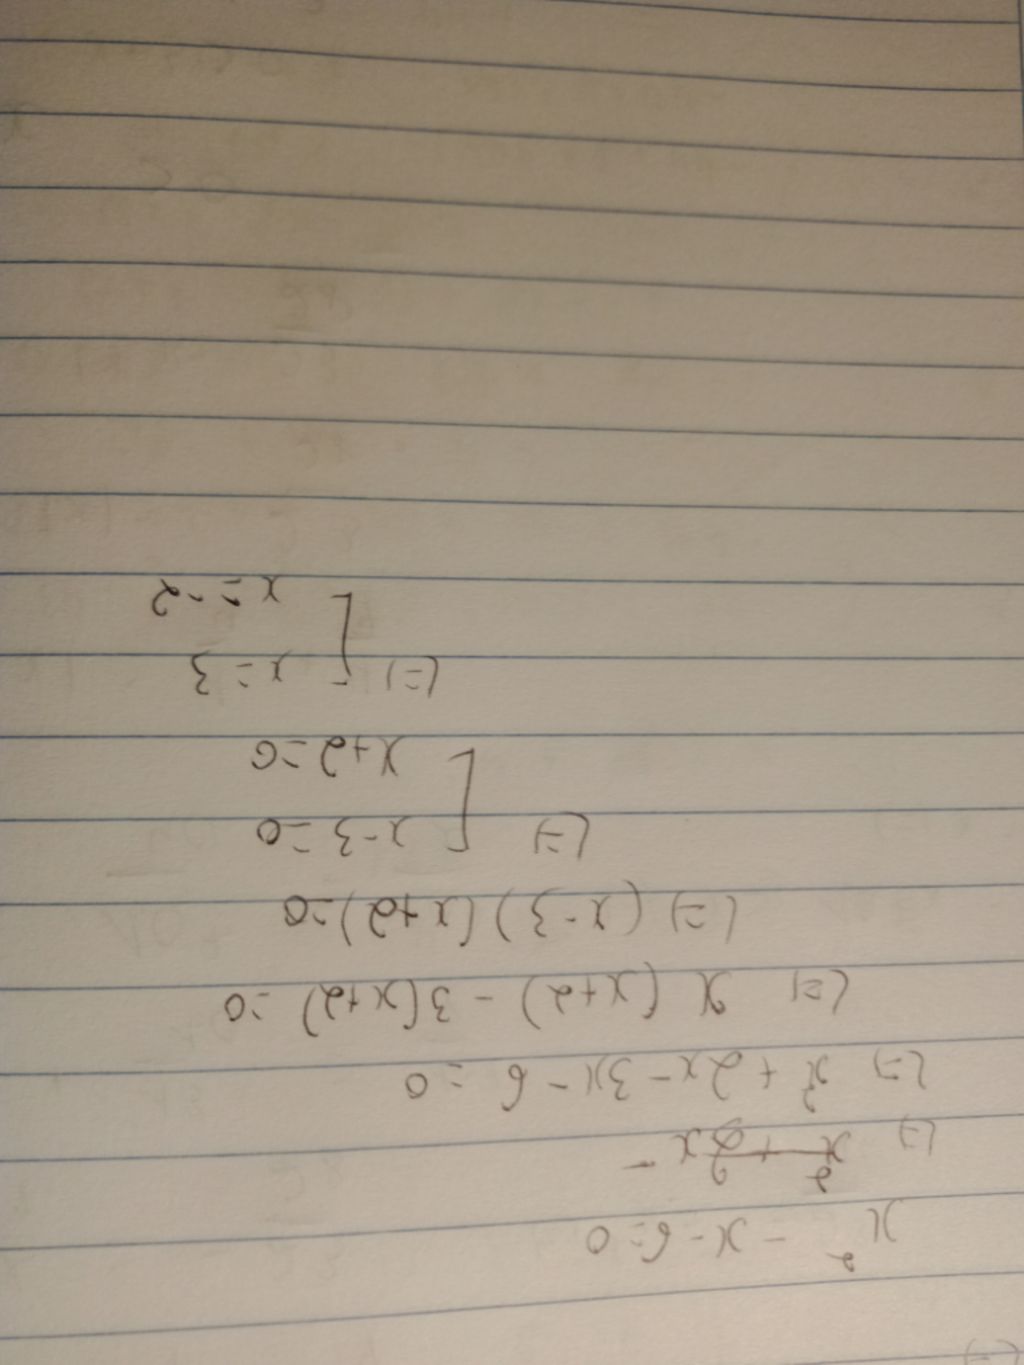 x² - x - 6 = 0
(=) x² + 2x -
(=) x² + 2x - 3x - 6 = 0
(=) x (x+2) - 3(x+2) = 0
(=) (x-3) (x+2) = 0
(=) [ x-3 = 0
x+2 = 0
(=) [ x = 3
x = -2